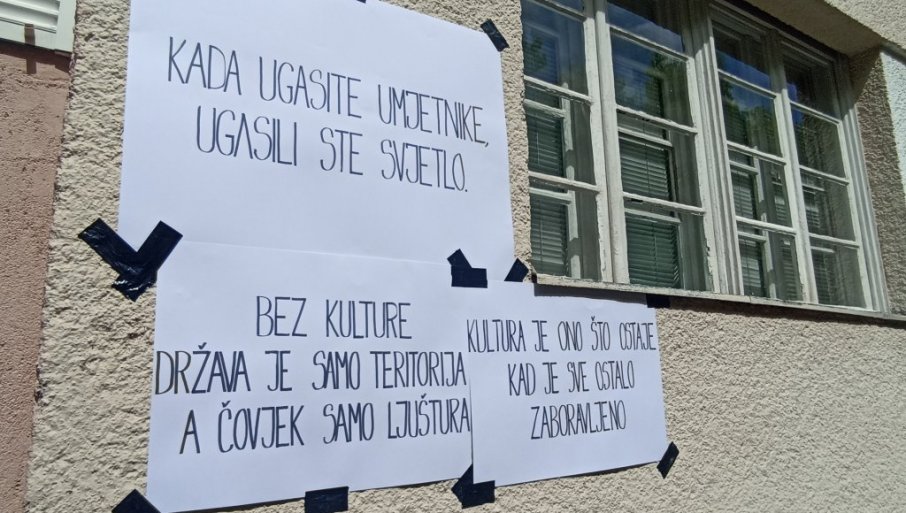 KADA UGASITE UMJETNIKE,
UGASILI STE SVJETLO.
BEZ KULTURE
DRŽAVA JE SAMO TERITORIJA
A ČOVJEK SAMO LJUŠTURA
KULTURA JE ONO ŠTO OSTAJE
KAD JE SVE OSTALO
ZABORAVLJENO